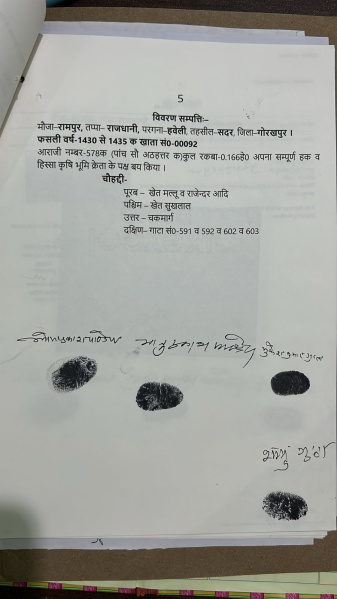 5
विवरण सम्पत्ति:–
मौजा–रामपुर, तप्पा– राजधानी, परगना–हवेली, तहसील–सदर, जिला–गोरखपुर ।
फसली वर्ष-1430 से 1435 क खाता सं0-00092
आराजी नम्बर-578क (पांच सौ अठहत्तर क)कुल रकबा-0.166हे0 अपना सम्पूर्ण हक व
हिस्सा कृषि भूमि क्रेता के पक्ष बय किया ।
चौहद्दी-
पूरब – खेत मल्लू व राजेन्दर आदि
पश्चिम – खेत सुखलाल
उत्तर – चकमार्ग
दक्षिण– गाटा सं0-591 व 592 व 602 व 603